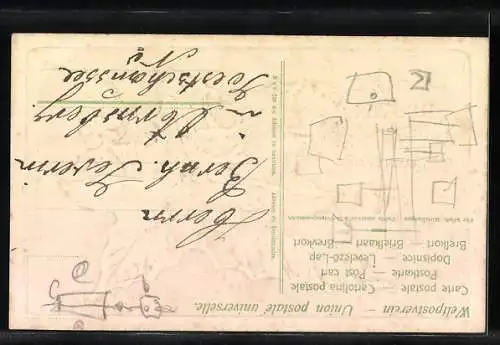 Weltpostverein — Union postale universelle.
Carte postale — Cartolina postale
Postkarte — Post card
Dopisnice — Levelező-Lap
Brefkort — Briefkaart — Brevkort
Herrn
Bernh. Severin
in Arnsberg
Soestchaussee
No